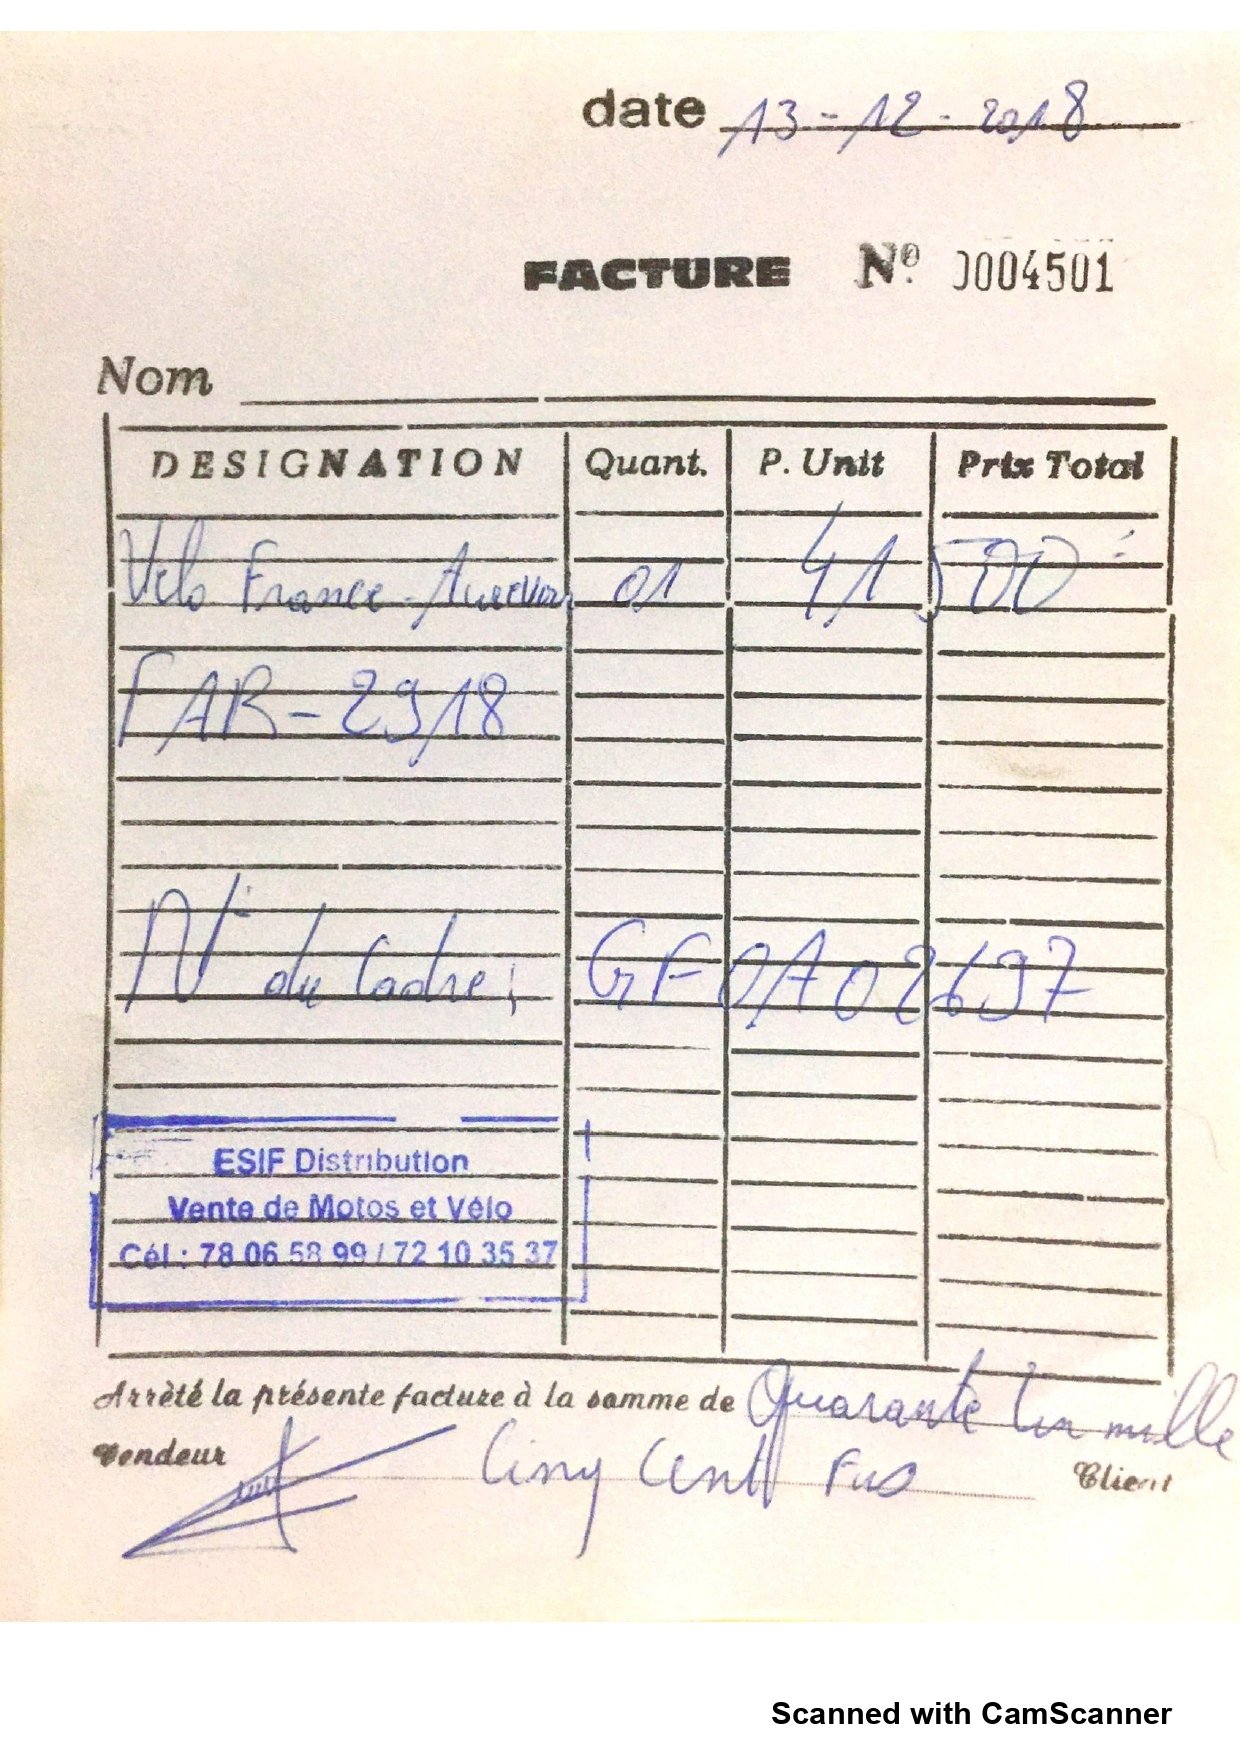 date 13-12-2018
FACTURE Nº 0004501
Nom
DESIGNATION Quant. P. Unit Prix Total
Vélo France- 01 41 500
FAR-2918
N° du Cadre: GF0A02697
ESIF Distribution
Vente de Motos et Vélo
Cél : 78 06 58 99 / 72 10 35 37
Arrêté la présente facture à la somme de Quarante Un mille
Vendeur Cinq Cent Client